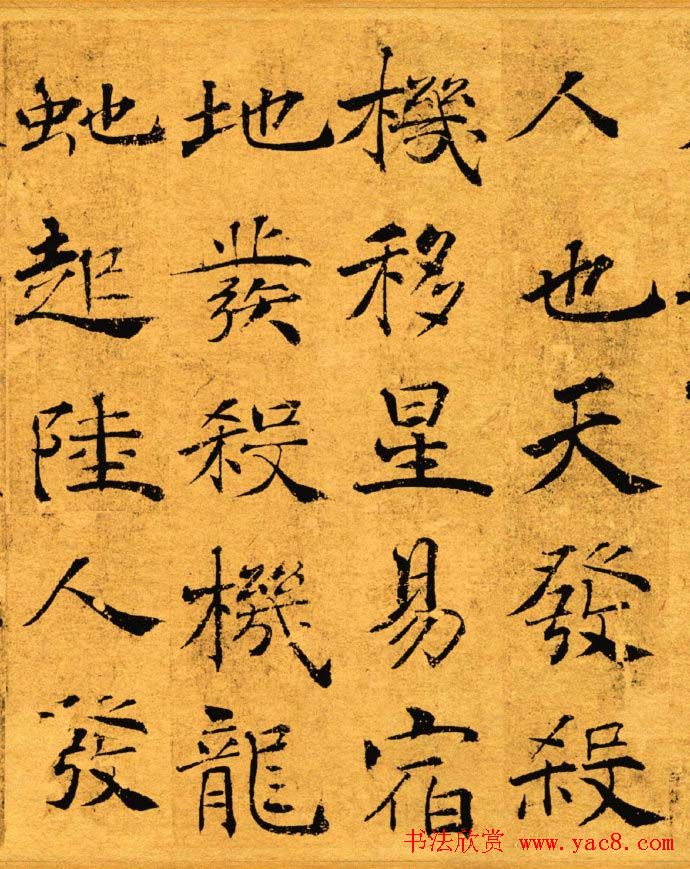 人也天發殺
機移星易宿
地發殺機龍
虵起陸人發
书法欣赏 www.yac8.com